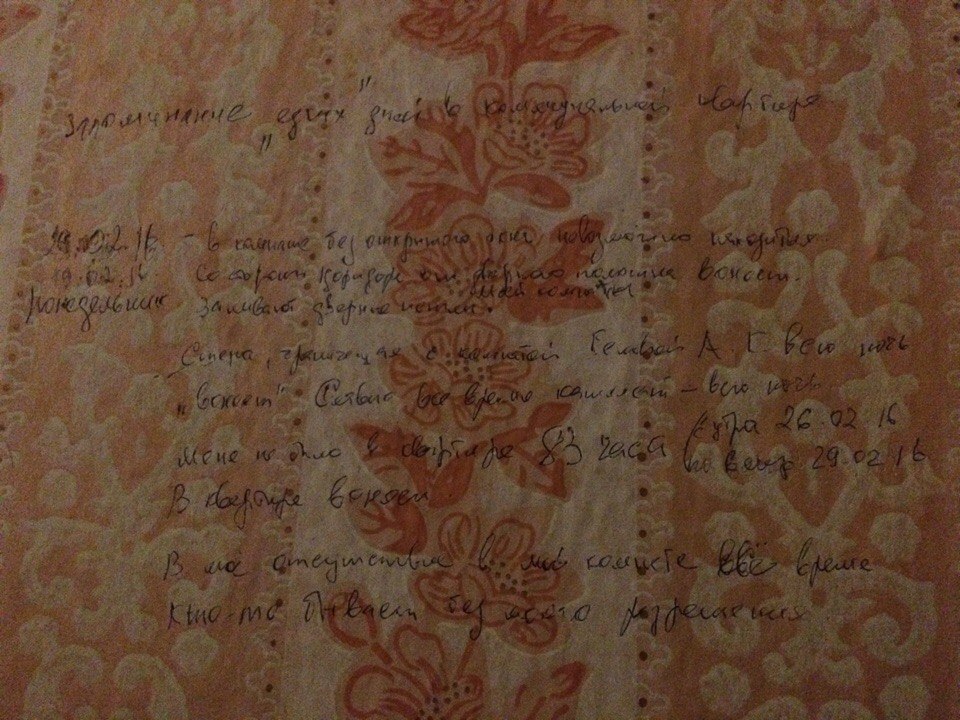 запоминание "едких" дней в коммунальной квартире
29.02.16 - в комнате без открытого окна невозможно находиться.
19.02.16 Со стороны коридора от дверного полотна воняет.
понедельник Заливают дверные петли моей комнаты.
Стена, граничащая с комнатой А. Г. всю ночь
"воняет" всё время кашляет - всю ночь.
Меня не было в квартире 83 часа (с утра 26.02.16
по вечер 29.02.16
В квартире вонось
В моё отсутствие в моей комнате всё время
кто-то бывает без моего разрешения.